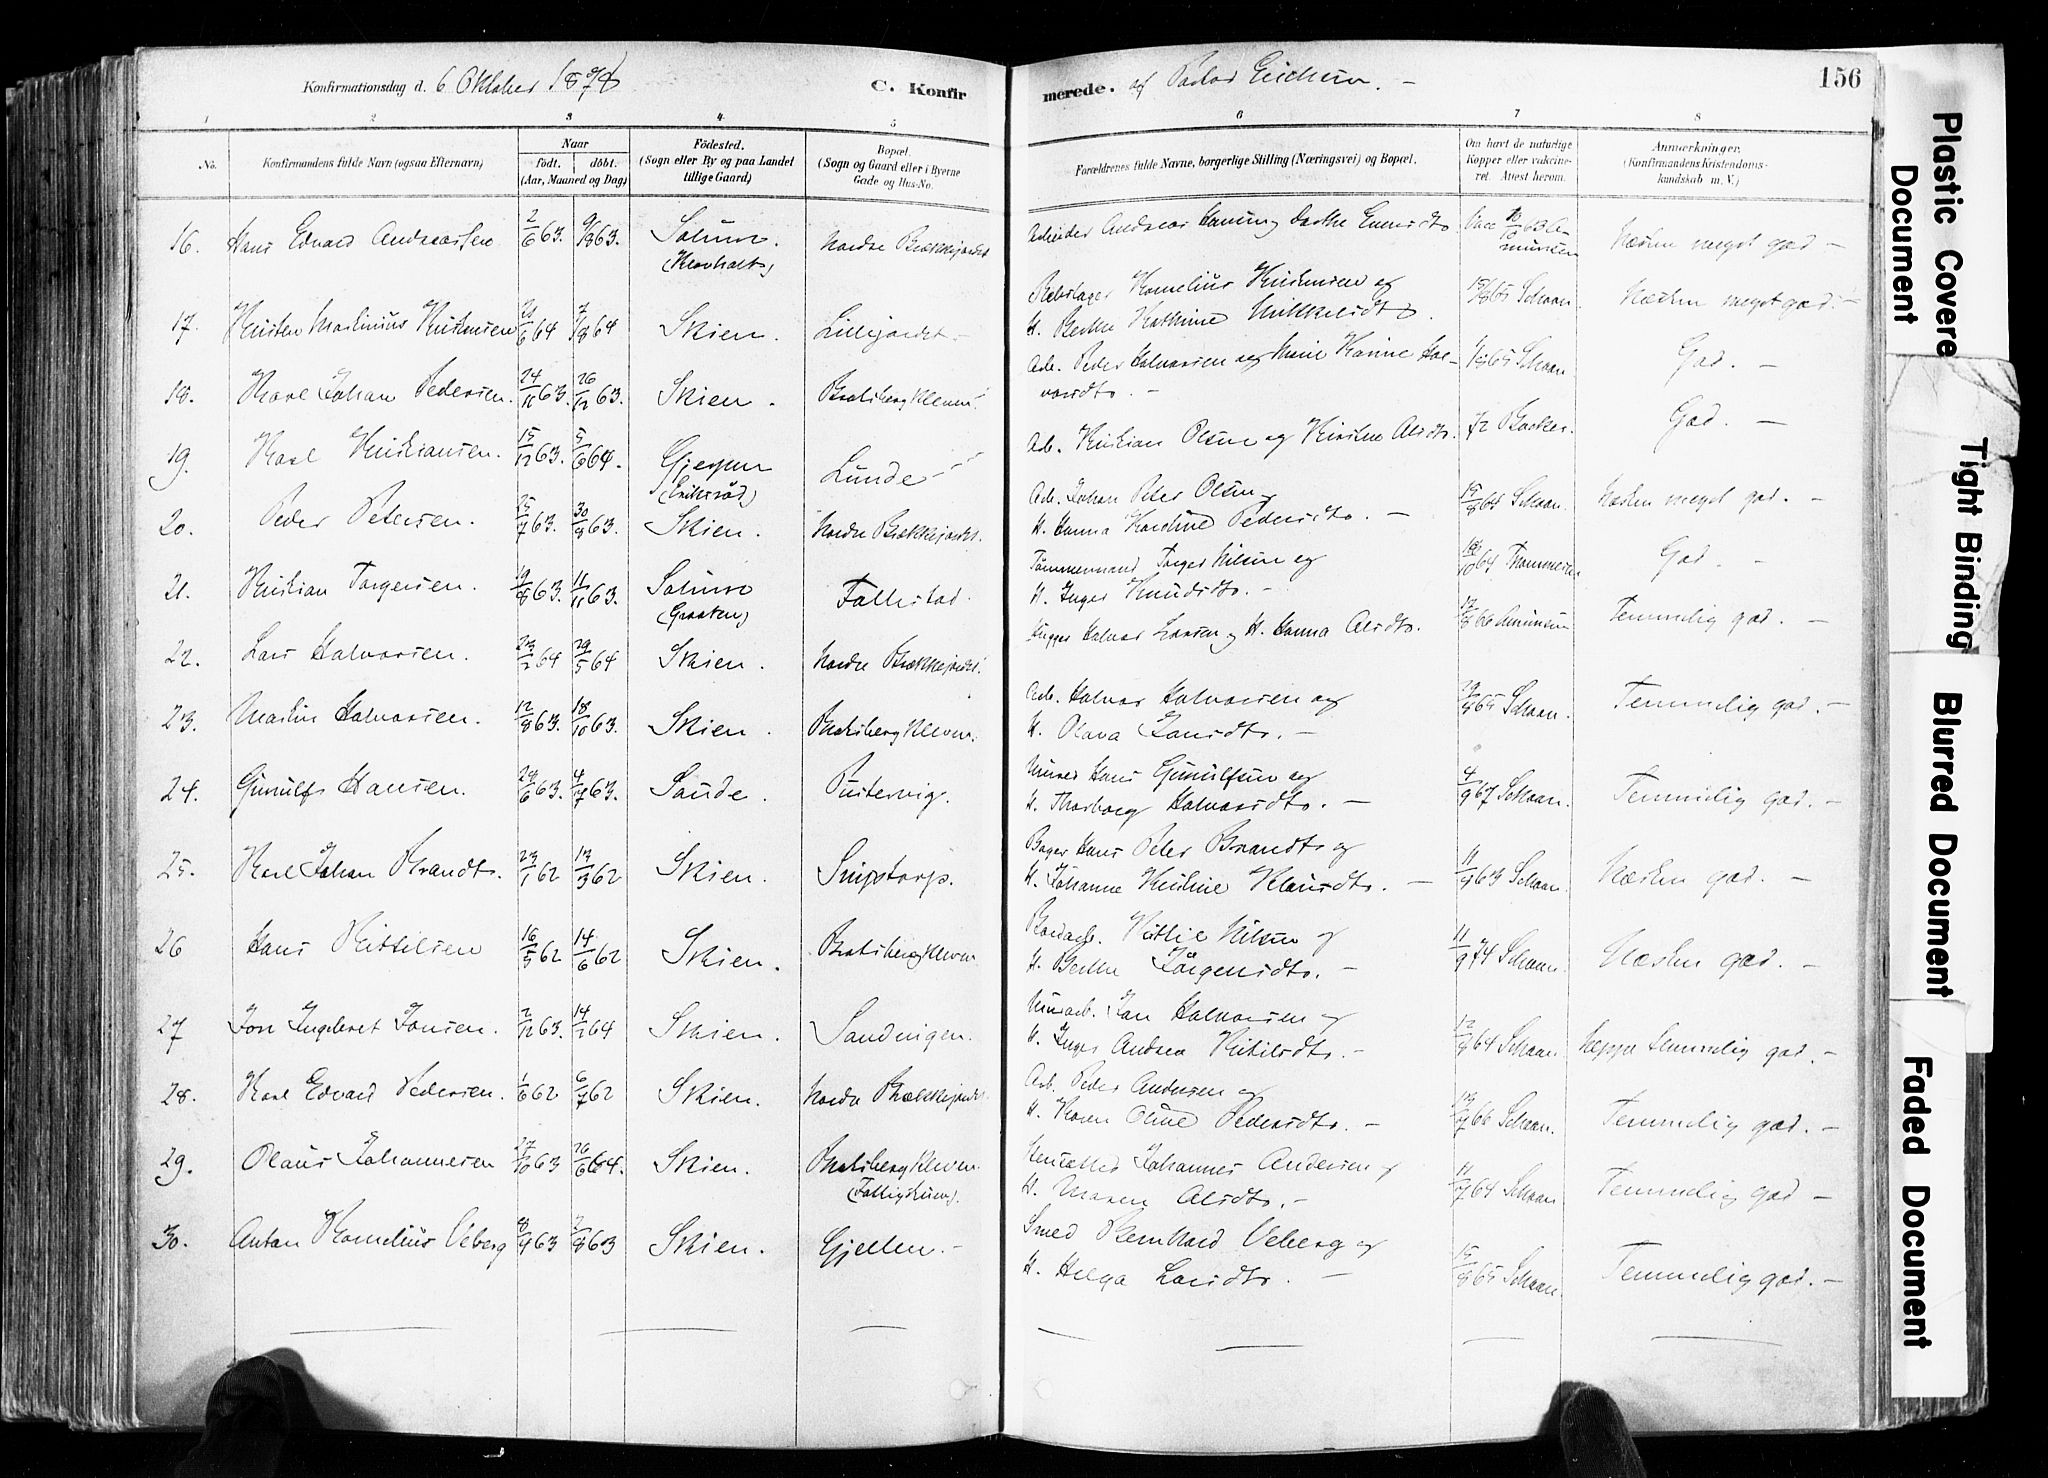 Konfirmationsdag d. 6 Oktober 1878 C. Konfirmerede. af Pastor
156
1 2 3 4 5 6 7 8
No. Konfirmandens fulde Navn (ogsaa Efternavn) Naar födt. döbt. (Aar, Maaned og Dag) Födested. (Sogn eller By og paa Landet tillige Gaard) Bopæl. (Sogn og Gaard eller i Byerne Gade og Hus-No. Forældrenes fulde Navne, borgerlige Stilling (Næringsvei) og Bopæl. Om havt de naturlige Kopper eller vakcineret. Attest herom. Anmærkninger, (Konfirmandens Kristendomskundskab m. V.)
16. Hans Edvard Andreassen 2/6 63. 9/8 63. Solum. Nordre Brækkejordet Arbeider Andreas Hansen og Næsten meget god –
17. Kristen Martinius Kristensen 21/6 64 7/8 64 Skien. Lillejordet – Rebslager Kornelius Kristensen og
H. Berthe Kathrine Mikkelsdtr. 15/8 65 Schaan. Næsten meget god. –
18. Karl Johan Pedersen. 24/11 63. 26/12 63. Skien. Bratsbergkleven. Arb. Peder Halvorsen og Marie Karine Halvorsdtr. – Schaan. God. –
19. Karl Kristiansen. 15/12 63. 5/6 64. Gjerpen
(Eriksrød) Lunde – Arb. Kristian Olsen og Kirsten Alsdtr. 72 Backer. God. –
20. Peder Petersen. 25/7 63. 30/8 63. Skien. Nordre Brækkejordet. Arb. Johan Peter Olsen og
H. Hanna Karoline Pedersdtr. – 15/8 64 Schaan. Næsten meget god. –
21. Kristian Torgersen. 19/8 63. 11/11 63. Solum
(Graaten) Follestad. Tømmermand Torger Nilsen og
H. Inger Knudsdtr. – God. –
22. Lars Halvorsen. 23/2 64 29/5 64 Skien. Nordre Brækkejordet. Halvor Larsen og H. Hanna Alsdtr. Temmelig god. –
23. Martin Halvorsen. 12/8 63. 18/10 63. Skien. Bratsbergkleven. Arb. Halvor Halvorsen og
H. Olava Jonsdtr. – Schaan. Temmelig god. –
24. Gunulf Hansen. 28/6 63. 4/7 63. Saude. Pustervig. Murer Hans Gunulfsen og
H. Thorborg Halvorsdtr. – 4/9 67 Schaan. Temmelig god. –
25. Karl Johan Brandt. 23/1 62 13/3 62 Skien. Sniptorp. Bager Hans Peter Brandt og
H. Johanne Kirstine Klausdtr. – 11/9 63 Schaan. Næsten god. –
26 Hans Kittilsen 16/5 62 14/6 62 Skien. Bratsbergkleven Bordarb. Kittil Nilsen og
H. Berthe Jørgensdtr. – 11/9 74 Schaan. Næsten god. –
27 Jon Ingebret Jonsen. 2/12 63. 14/2 64 Skien. Sandvigen. Murarb. Jon Halvorsen og
H. Inger Andrea Kittilsdtr. – 12/8 64 Schaan neppe temmelig god. –
28. Karl Edvard Pedersen. 1/6 62 6/7 62 Skien. Nordre Brækkejordet. Arb. Peder Andersen og
H. Karen Oline Pedersdtr. – 66 Schaan. Temmelig god. –
29. Olaus Johannesen 27/10 63 26/6 64. Skien. Bratsbergkleven. Johannes Andersen og
H. Maren Alsdtr. – 64 Schaan Temmelig god –
30. Anton Kornelius Veberg 8/4 63 2/8 63 Skien. Gjellen. – Smed Bernhard Veberg og
H. Helga Larsdtr. – 15/8 65 Schaan. Temmelig god. –
Plastic Covere Document
Tight Binding
Blurred Document
Faded Document